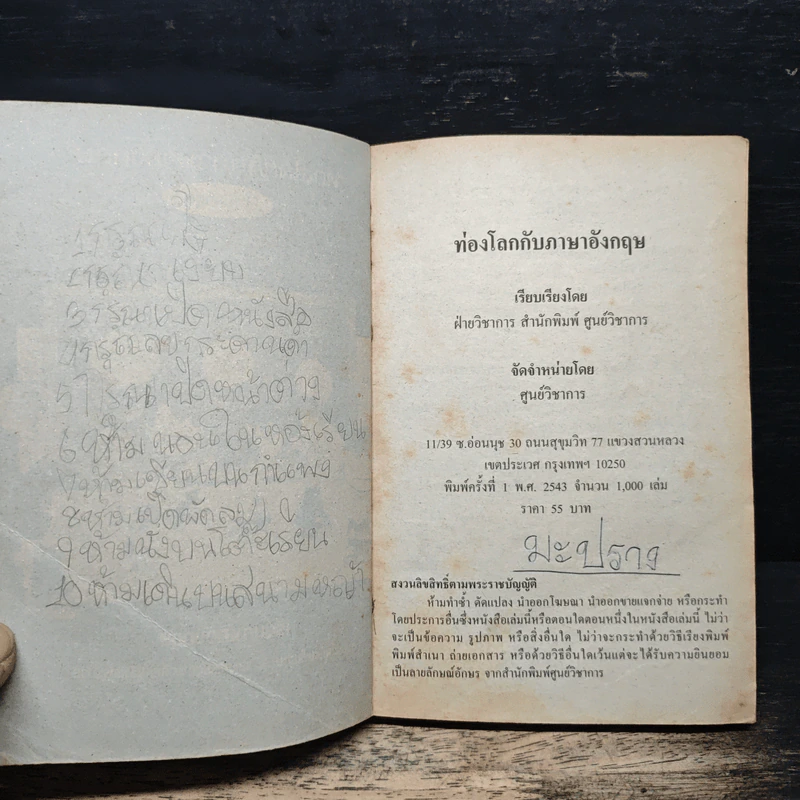 3 กรุณาเปิดหนังสือ
5 กรุณาปิดหน้าต่าง
6 ห้ามนอนในห้องเรียน
7 ห้ามเขียนบนกำแพง
8 ห้ามเปิดพัดลม
9 ห้ามนั่งบนโต๊ะเรียน
10 ห้ามเดินบนสนามหญ้า
ท่องโลกกับภาษาอังกฤษ
เรียบเรียงโดย
ฝ่ายวิชาการ สำนักพิมพ์ ศูนย์วิชาการ
จัดจำหน่ายโดย
ศูนย์วิชาการ
11/39 ซ.อ่อนนุช 30 ถนนสุขุมวิท 77 แขวงสวนหลวง
เขตประเวศ กรุงเทพฯ 10250
พิมพ์ครั้งที่ 1 พ.ศ. 2543 จำนวน 1,000 เล่ม
ราคา 55 บาท
มะปราง
สงวนลิขสิทธิ์ตามพระราชบัญญัติ
ห้ามทำซ้ำ ดัดแปลง นำออกโฆษณา นำออกขายแจกจ่าย หรือกระทำ
โดยประการอื่นซึ่งหนังสือเล่มนี้หรือตอนใดตอนหนึ่งในหนังสือเล่มนี้ ไม่ว่า
จะเป็นข้อความ รูปภาพ หรือสิ่งอื่นใด ไม่ว่าจะกระทำด้วยวิธีเรียงพิมพ์
พิมพ์สำเนา ถ่ายเอกสาร หรือด้วยวิธีอื่นใดเว้นแต่จะได้รับความยินยอม
เป็นลายลักษณ์อักษร จากสำนักพิมพ์ศูนย์วิชาการ